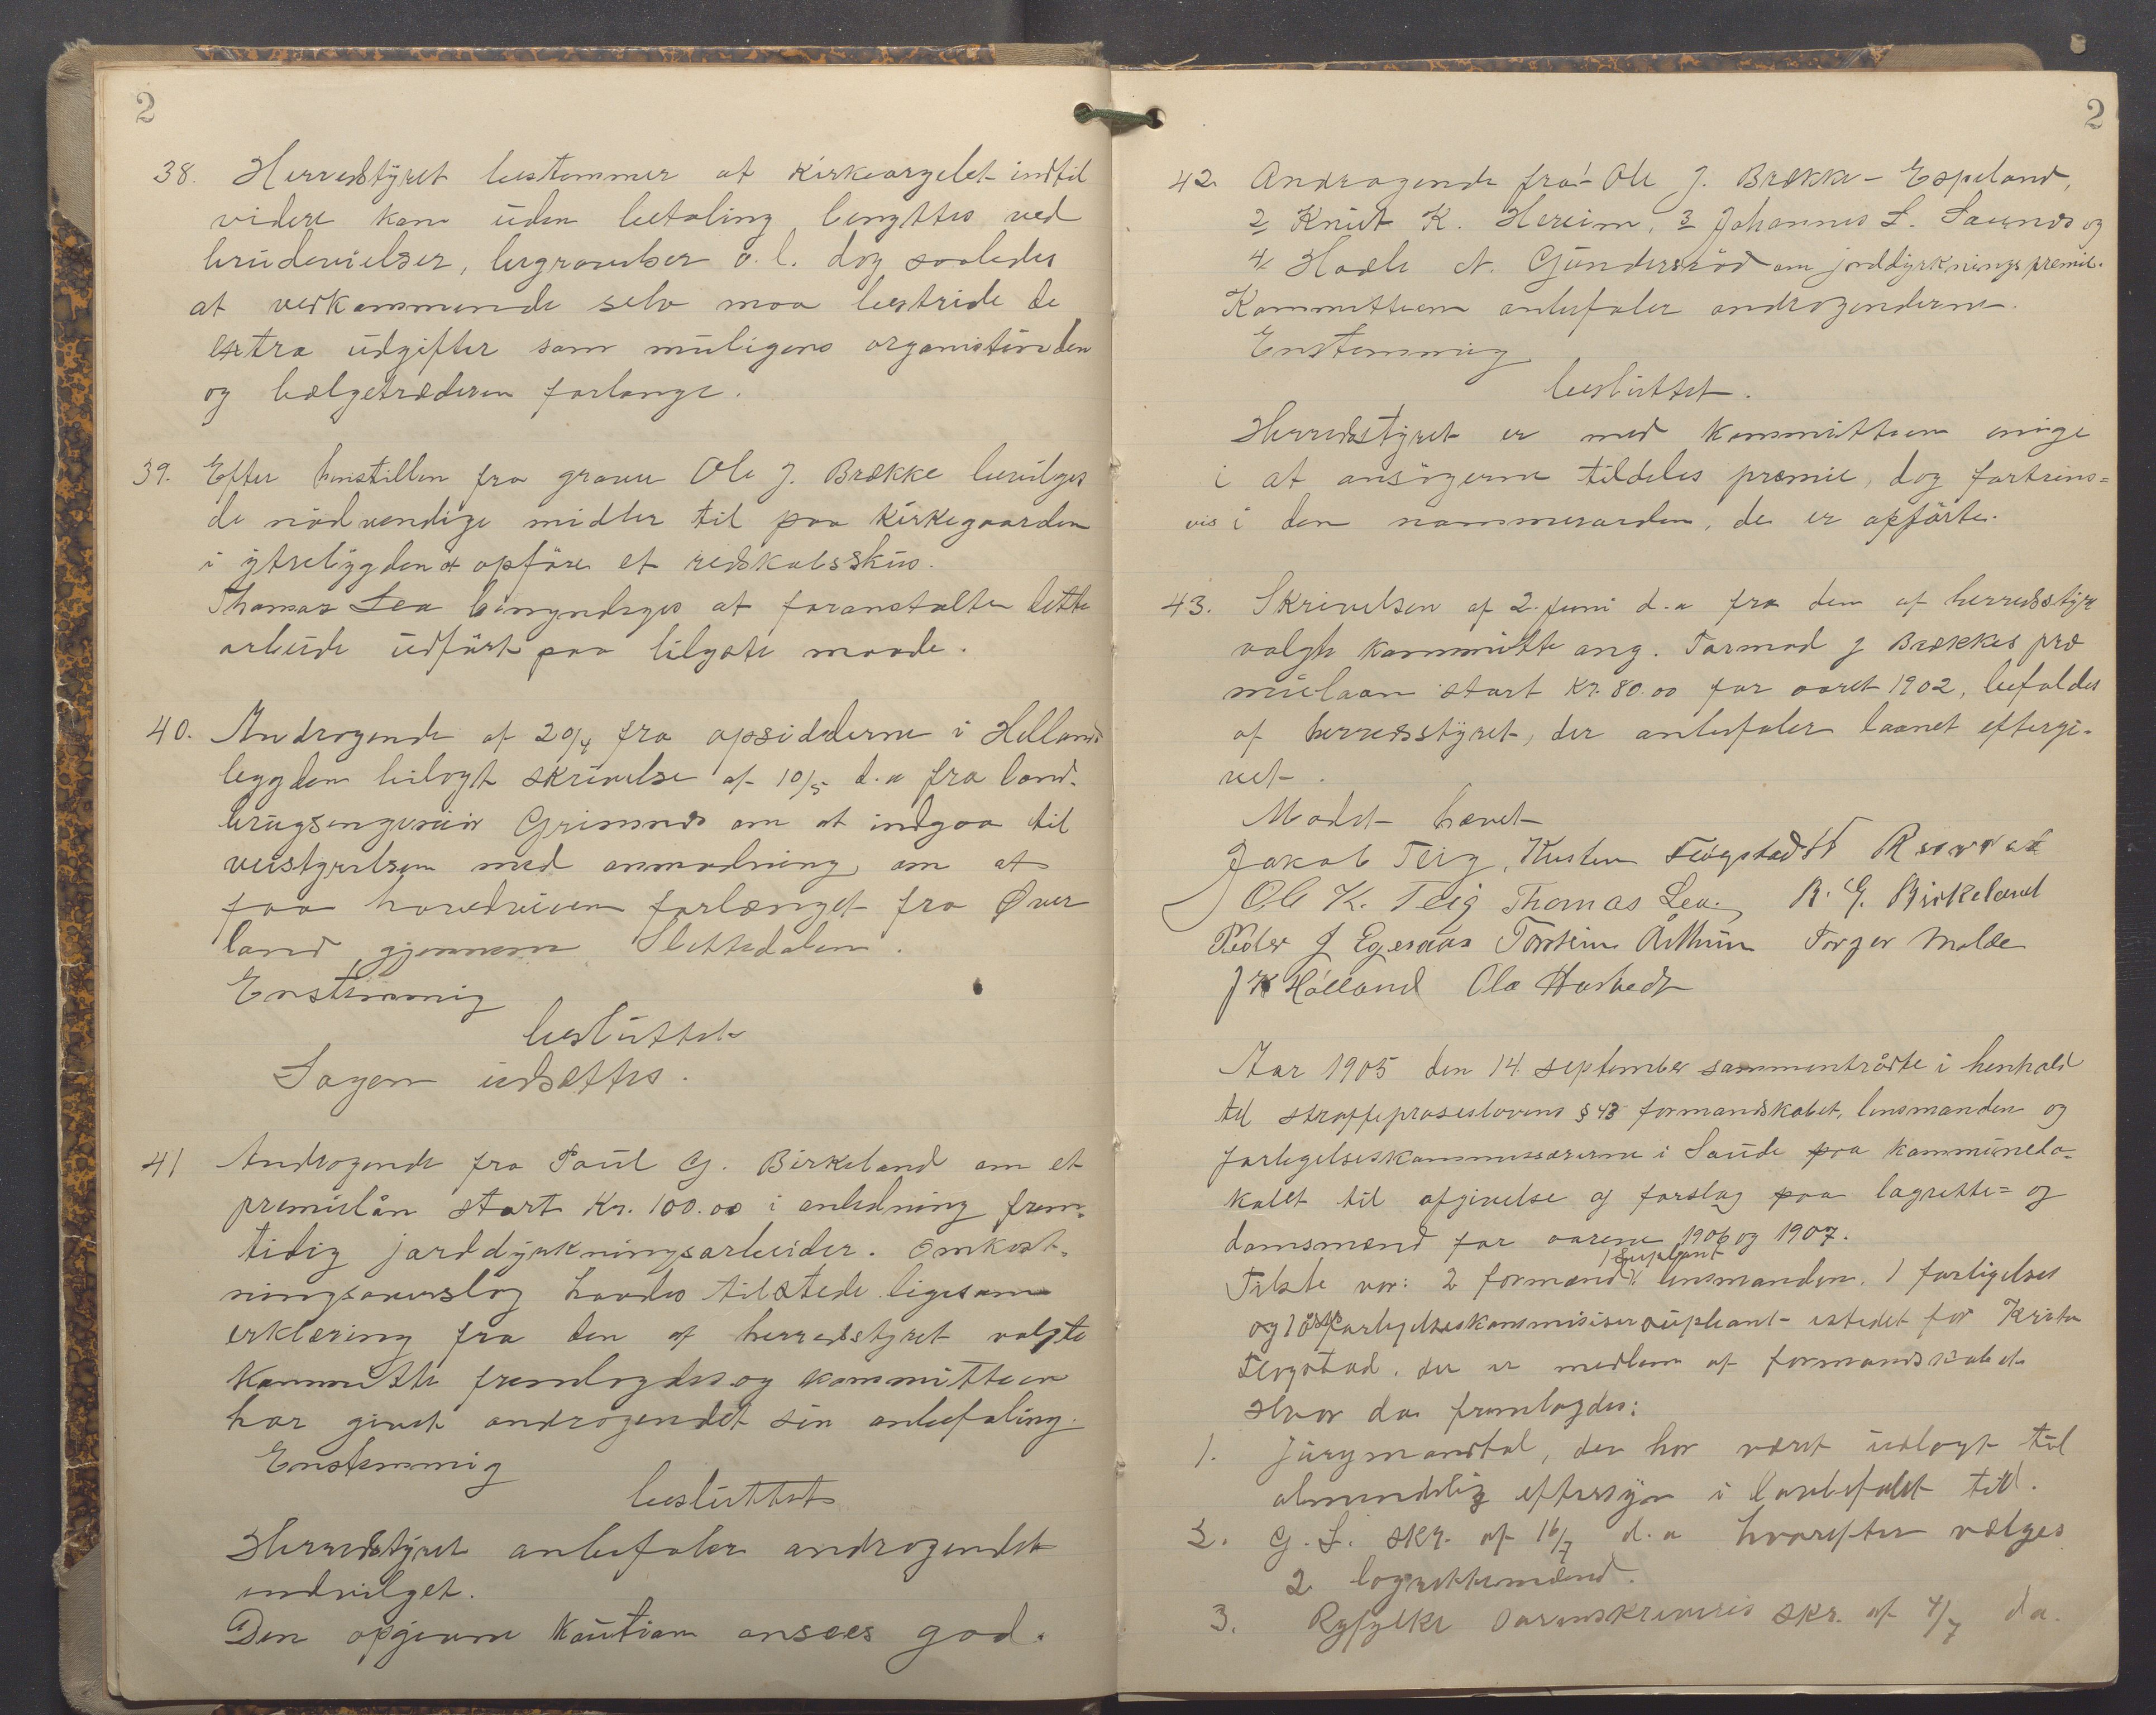 2
38. Herredstyret bestemmer at kirkeorgelet indtil
videre kan uden betaling benyttes ved
brudevielser, begravelser o. l. dog saaledes
at vedkommende selv maa bestride de
extra udgifter som muligens organistinden
og bælgetræderen forlange.
39. Efter henstillen fra graver Ole J. Brække bevilges
de nødvendige midler til paa kirkegaarden
i ytrebygden at opføre et redskabsskur.
Thomas Lea bemyndiges at foranstalte dette
arbeide udført paa billigste maade.
40. Androgende af 20/4 fra opsidderne i Hellands
bygden bilagt skrivelse af 10/5 d.a fra land-
brugsingeniør Grimnes om at indgaa til
veistyrelsen med anmodning om at
faa hovedveien forlænget fra Øver
land gjennem Slettedalen.
Enstemmig
besluttet
Sagen udsættes.
41 Androgende fra Paul G. Birkeland om et
premielån stort Kr. 100.00 i anledning frem-
tidig jorddyrkningsarbeider. Omkost-
ningsoverslag havdes tilstede ligesom
erklæring fra den af herredstyret valgte
kommitte fremlagdes og kommitteen
har givet androgendet sin anbefaling.
Enstemmig
besluttet
Herredstyret anbefaler androgendet
indvilget.
Den opgivne kaution ansees god.
2
42. Androgende fra 1 Ole J. Brække - Espeland,
2 Knut K. Hereim, 3 Johannes L. Saunes og
4 Hadle N. Gundersrød om jorddyrkningspremie.
Kommitteen anbefaler androgenderne.
Enstemmig
besluttet.
Herredstyret er med kommitteen enige
i at ansøgerne tildeles præmie, dog fortrins=
vis i den nammerorden, de er opførte.
43. Skrivelsen af 2. juni d.a fra den af herredsstyre
valgte kommitte ang. Tormod J Brækkes præ
mielaan stort Kr. 80.00 for aaret 1902, befaldes
af herredsstyret, der anbefaler laanet eftergi-
vet.
Mødet hævet
Jakob Teig, Kristen Fløgstad
Ole K. Teig Thomas Lea. R. G. Birkeland
Peder J Egeraas Torstein Arthun Torger Molde
J K Hólland Ola Hustvedt
Aar 1905 den 14 september sammentrådte i henhold
til straffeproseslovens § 43 formandskabet, lensmanden og
forligelseskommissærerne i Saude paa kommunelo-
kalet til afgivelse af forslag paa lagrette= og
domsmænd for aarene 1906 og 1907.
1 Supleant
Tilste var: 2 formænd lensmanden. 1 forligelses
og 1 forligelseskommisiser supleant istedet for Kristen
Fløgstad, der er medlem af formandskabet.
Hvor da fremlagdes:
1. Jurymandtal, der har været udlagt til
almindelig eftersyn i lovbefalet tid.
2. G. S. skr. af 16/7 d.a hvorefter vælges
2 lagrettemænd.
3. Ryfylke sorenskriveris skr. af 4/7 da.